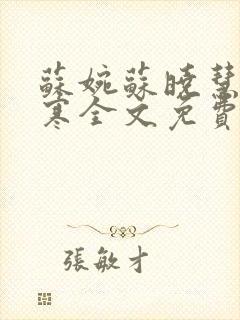 蘇婉蘇曉慧
寒全文免費
張敏才